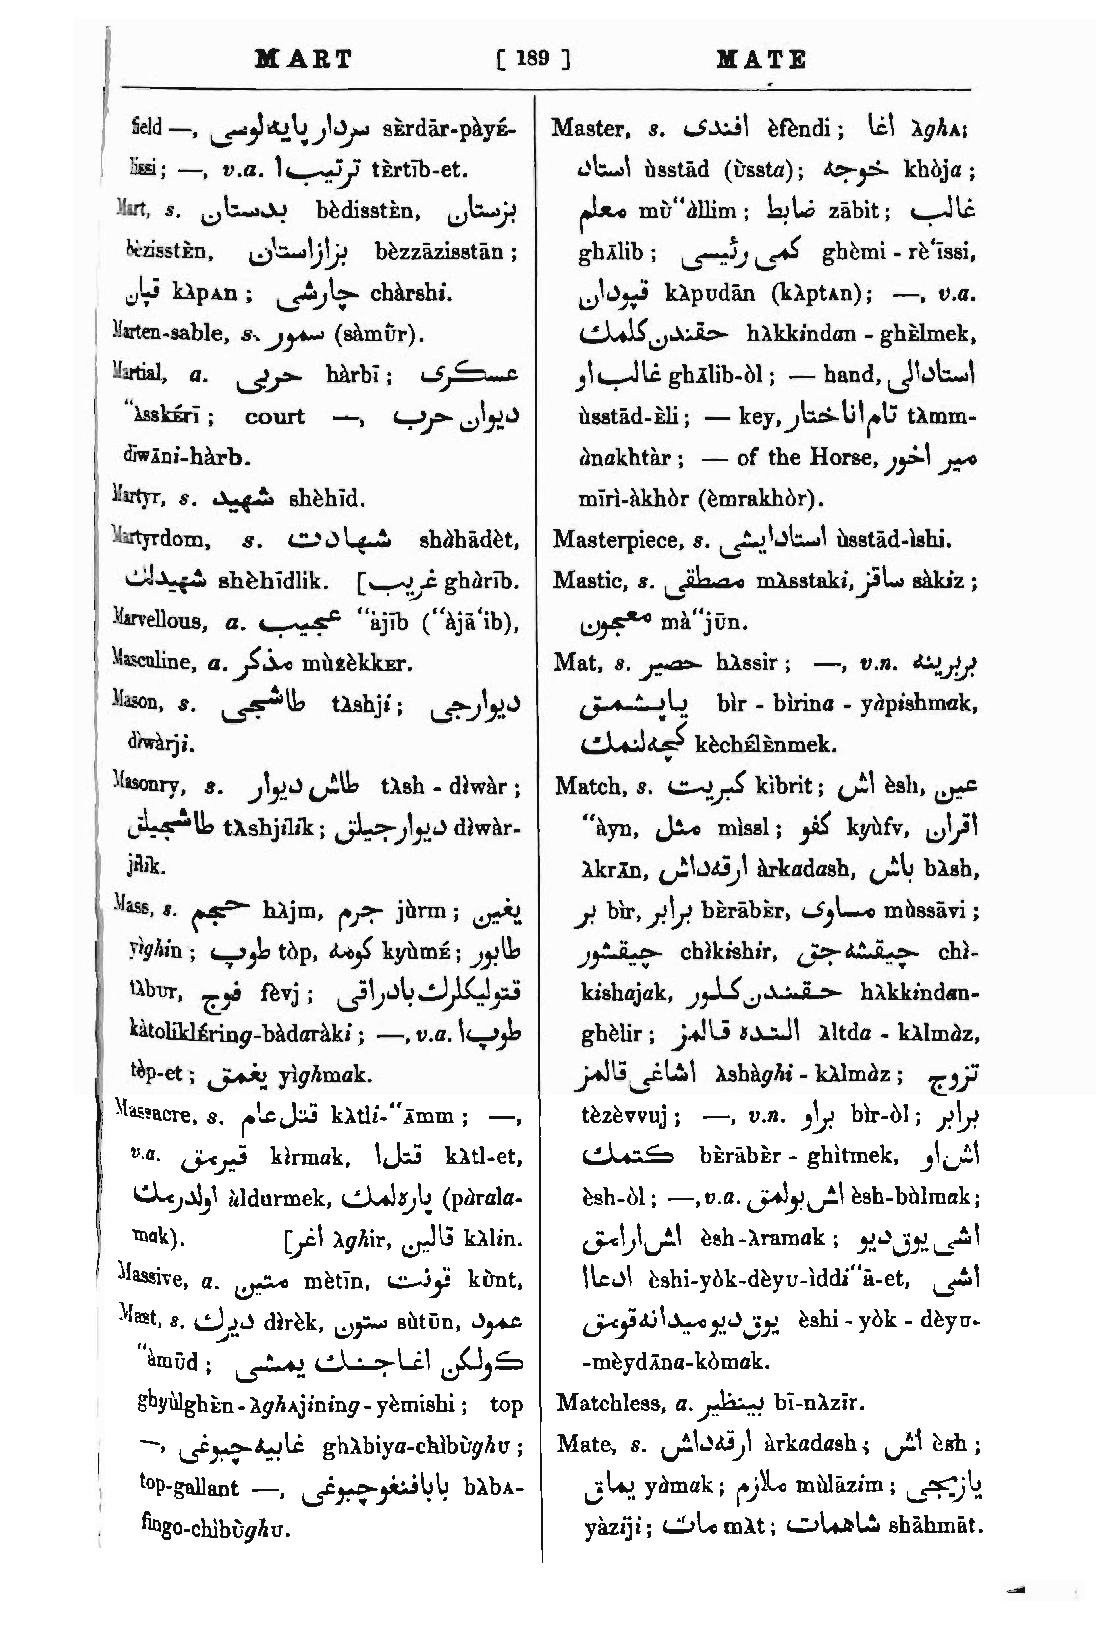 MART [ 189 ] MATE
field —, سردار پایه‌لوسی sÈrdār-pàyÉ-
lissi; —, v.a. ترتیب ا tÈrtīb-et.
Mart, s. بدستان bèdisstÈn, بزستان
bèzisstÈn, بزازاستان bèzzāzisstān;
قپان kλpᴀn; چارشی chàrshi.
Marten-sable, s. سمور (sàmūr).
Martial, a. حربی hàrbī; عسکری
“àsskÉrī; court —, دیوان حرب
dīwāni-hàrb.
Martyr, s. شهید shèhīd.
Martyrdom, s. شهادت shàhādèt,
شهیدلك shèhīdlik. [غریب ghàrīb.
Marvellous, a. عجیب “àjīb (“àjā‘ib),
Masculine, a. مذکر mùzèkkᴇr.
Mason, s. طاشجی tλshji; دیوارجی
dìwàrji.
Masonry, s. طاش دیوار tλsh-dìwàr;
طاشجیلق tλshjilik; دیوارجیلق dìwàr-
jilik.
Mass, s. حجم hλjm, جرم jùrm; یغین
yìghin; طوپ tòp, کومه kyùmÉ; طابور
tλbur, فوج fèvj; قتولیکلرك بادراقی
kàtolìklÉring-bàdaràki; —, v.a. طوپ ا
tòp-et; یغمق yìghmak.
Massacre, s. قتل عام kλtli-“āmm; —,
v.a. قیرمق kìrmak, قتل ا kλtl-et,
اولدرمك ùldurmek, پاره‌لمك (pàrala-
mak). [اغر λghir, قالین kλlin.
Massive, a. متین mètīn, قونت kùnt,
Mast, s. دیرك dìrèk, ستون sùtūn, عمود
“àmūd; کولکن اغاجنك یمشی
ghyùlghÈn-λghᴀjining-yèmishi; top
—, غابیه چبوغی ghλbiya-chìbùghu;
top-gallant —, بابافنغو چبوغی bλbᴀ-
fingo-chìbùghu.
Master, s. افندی èfèndi; اغا λghᴀ;
استاد ùsstād (ùssta); خوجه khòja;
معلم mù“àllim; ضابط zābit; غالب
ghλlib; کمی رئیسی ghèmi-rè‘īssi,
قپودان kλpudān (kλptᴀn); —, v.a.
حقندن کلمك hλkkindan-ghÈlmek,
غالب او ghλlib-òl; — hand, استادالی
ùsstād-Èli; — key, تام اناختار tλmm-
ànakhtàr; — of the Horse, میر اخور
mīrì-àkhòr (èmrakhòr).
Masterpiece, s. استادایشی ùsstād-ìshi.
Mastic, s. مصطقی mλsstaki, ساقز sàkiz;
معجون mà“jūn.
Mat, s. حصیر hλssir; —, v.n. بربرینه
یاپشمق bìr-bìrina-yàpishmak,
کچه‌لنمك kèchÉlÈnmek.
Match, s. کبریت kìbrit; اش èsh, عین
“àyn, مثل mìssl; کفو kyùfv, اقران
λkrλn, ارقه‌داش àrkadash, باش bλsh,
بر bìr, برابر bÈrābÈr, مساوی mùssāvi;
چیقشور chìkishir, چیقشه‌جق chì-
kishajak, حقندن کلور hλkkindan-
ghèlir; التده قالمز λltda-kλlmàz,
اشاغی قالمز λshàghi-kλlmàz; تزوج
tèzèvvuj; —, v.n. بر او bìr-òl; برابر
کتمك bÈrābÈr-ghitmek, اش او
èsh-òl; —, v.a. اش بولمق èsh-bùlmak;
اش ارامق èsh-λramak; اشی یوق دیو
ادعا ا èshi-yòk-dèyu-ìddi“ā-et, اشی
یوق دیو میدانه قومق èshi-yòk-dèyu-
-mèydλna-kòmak.
Matchless, a. بینظیر bī-nλzīr.
Mate, s. ارقه‌داش àrkadash; اش èsh;
یماق yàmak; ملازم mùlāzim; یازیجی
yàziji; مات mλt; شاهمات shāhmāt.